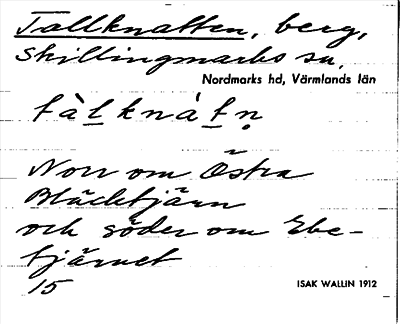 Tallknatten, berg,
Skillingmarks sn.
Nordmarks hd, Värmlands län
tàlknàtn
Norr om Östra
Bläcktjärn
och söder om Ebe-
tjärnet
15
ISAK WALLIN 1912